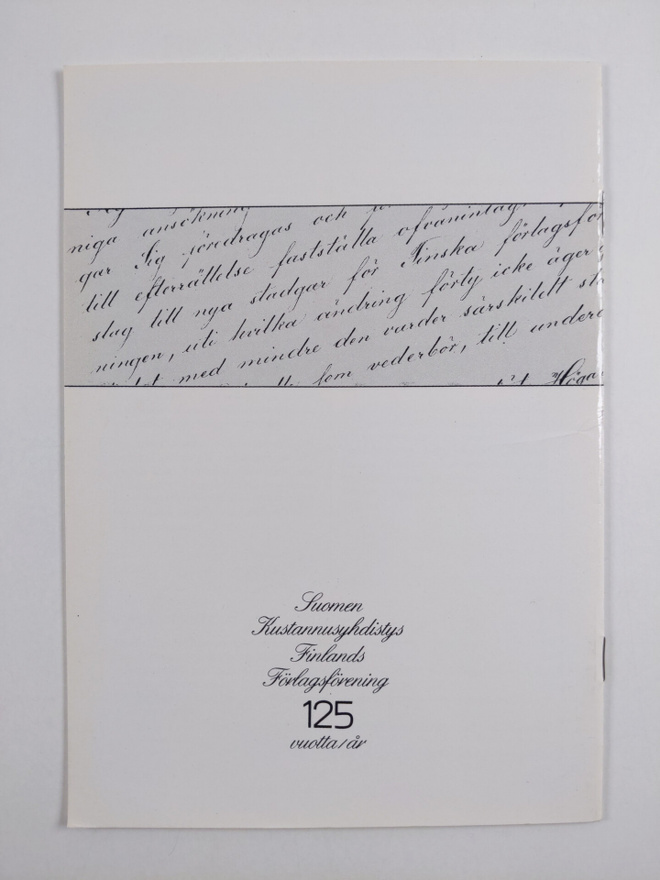 niga ansökning och
gar Sigföredragas
till efterrättelse fastställa ofvanintag
slag till nya stadgar för Finska förlagsför
ningen, uti hvilka ändring förty icke äger
med mindre den varder särskildt st
som vederbör, till under
Höga
Suomen
Kustannusyhdistys
Finlands
Förlagsförening
125
vuotta/år